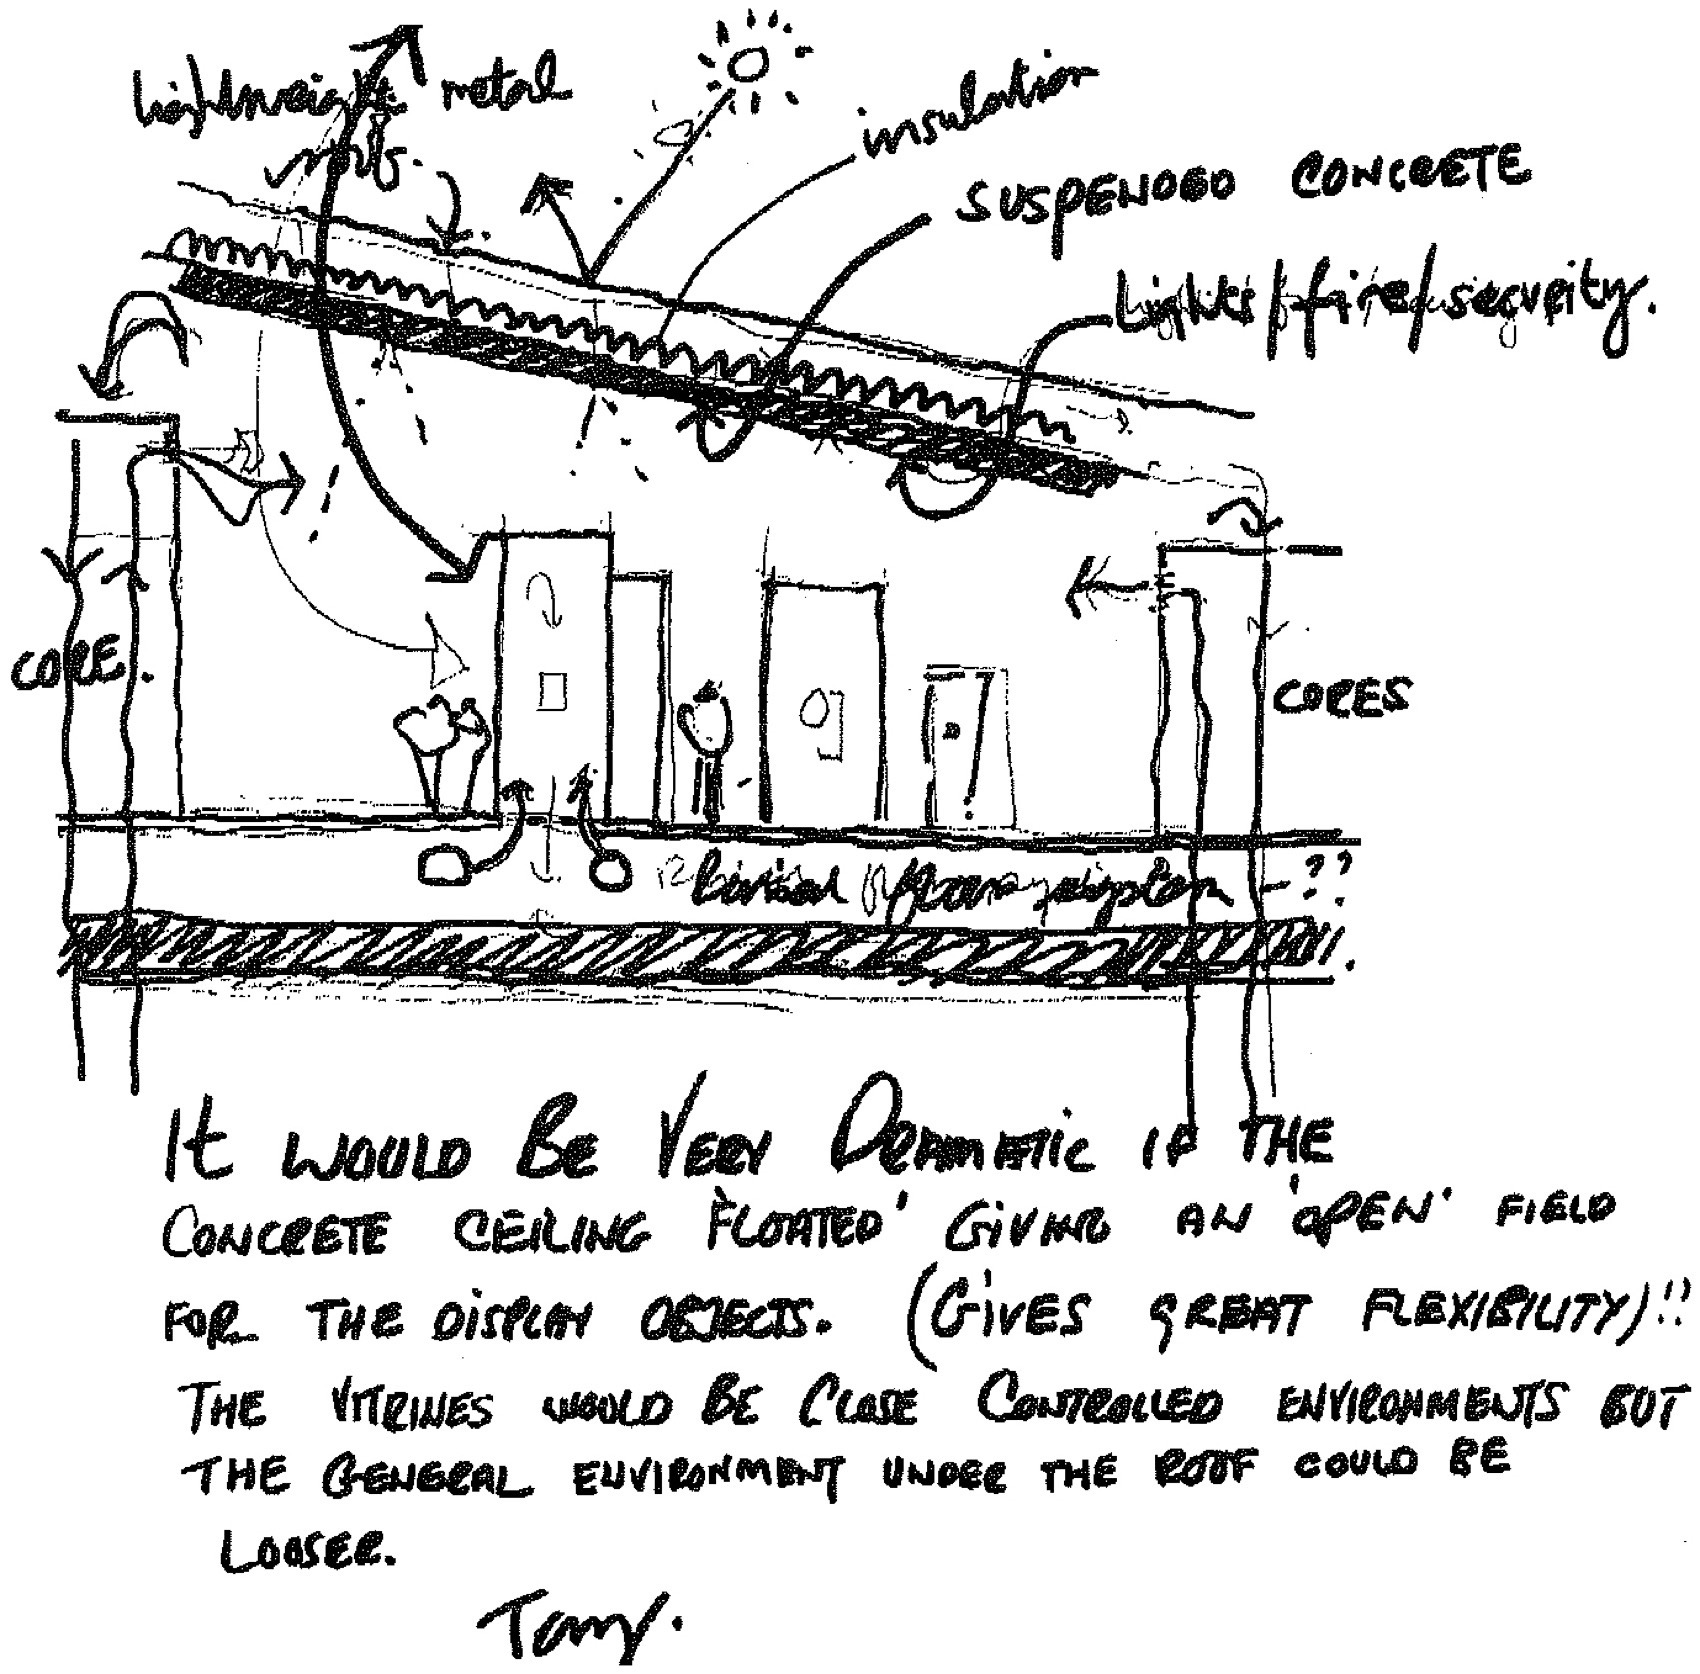 lightweight metal
insulation
SUSPENDED CONCRETE
lights/fire/security.
CORE.
CORES
floor system - ??
IT WOULD BE VERY DRAMATIC IF THE
CONCRETE CEILING 'FLOATED' GIVING AN 'OPEN' FIELD
FOR THE DISPLAY OBJECTS. (GIVES GREAT FLEXIBILITY)!!
THE VITRINES WOULD BE CLOSE CONTROLLED ENVIRONMENTS BUT
THE GENERAL ENVIRONMENT UNDER THE ROOF COULD BE
LOOSER.
Tony.